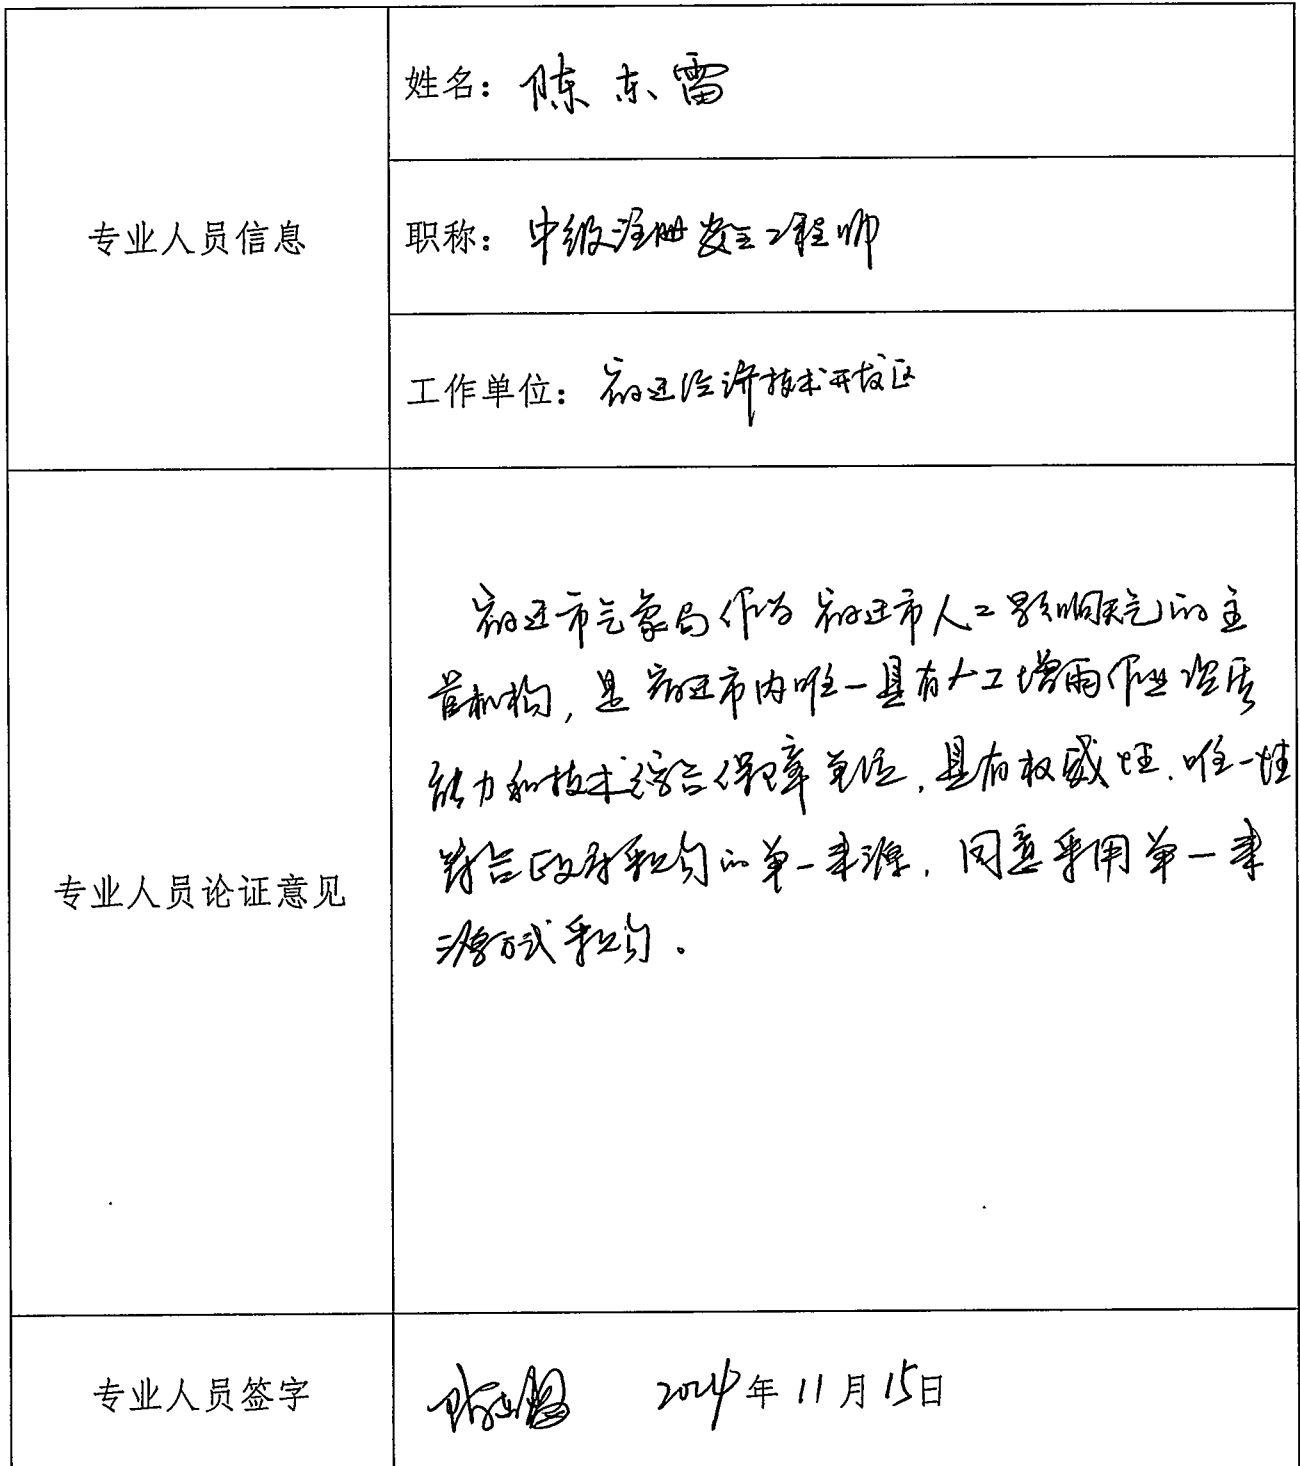 姓名：陈东雷
专业人员信息
职称：中级注册安全工程师
工作单位：宿迁经济技术开发区
宿迁市气象局作为宿迁市人工影响天气的主
管机构，是宿迁市内唯一具有人工增雨作业资质
能力和技术综合保障单位，具有权威性、唯一性
符合政府采购的单一来源，同意采用单一来
源方式采购。
专业人员论证意见
专业人员签字
陈东雷 2024年11月15日